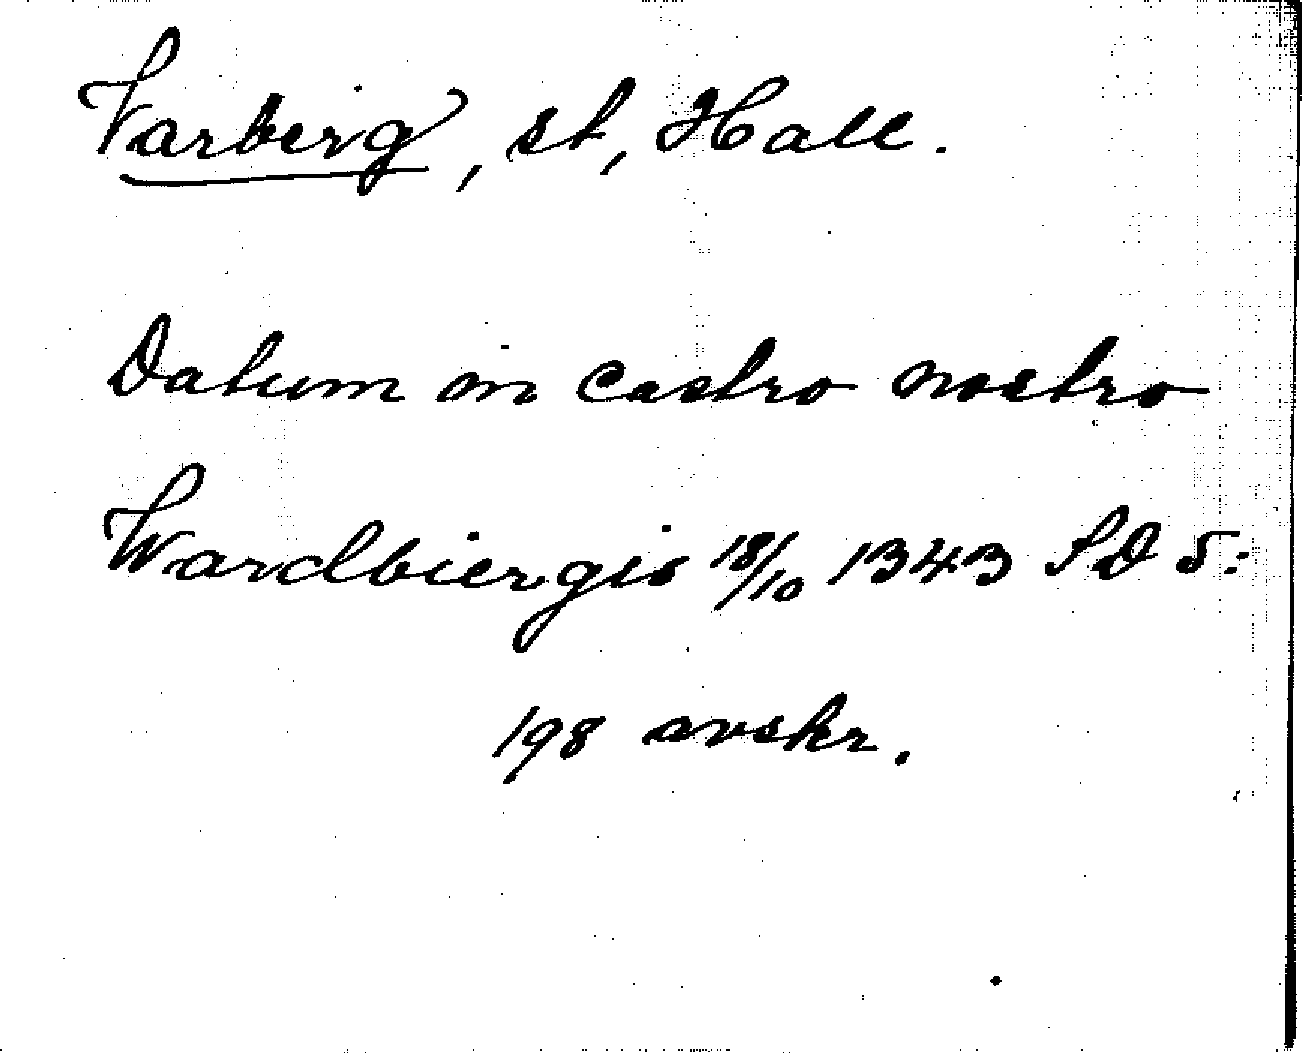 Varberg, st, Hall.
Datum in castro nostro
Wardbiergis 18/10 1343 SD 5:
198 avskr.